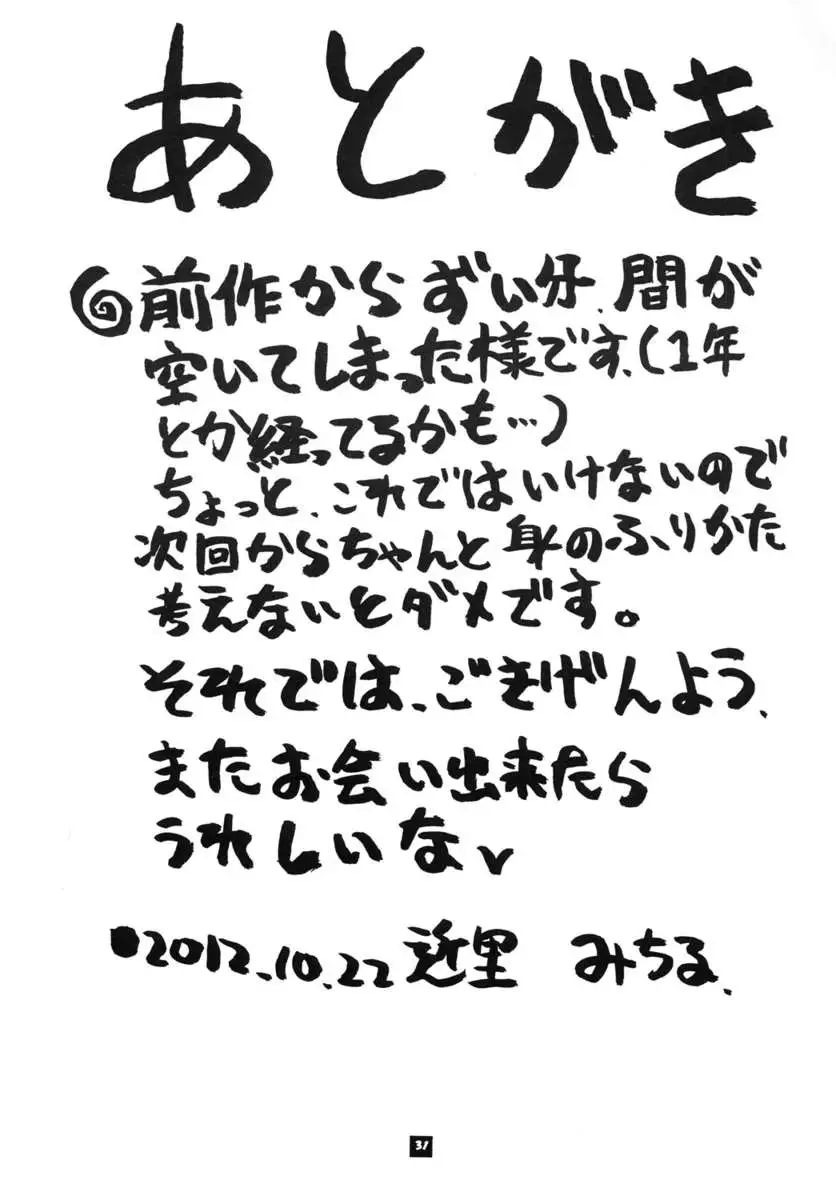 あとがき
前作からずい分、間が
空いてしまった様です、(1年
とか経ってるかも…)
ちょっと、これではいけないので
次回からちゃんと身のふりかた
考えないとダメです。
それでは、ごきげんよう、
またお会い出来たら
うれしいな
●2012.10.22 近里 みちる、
31